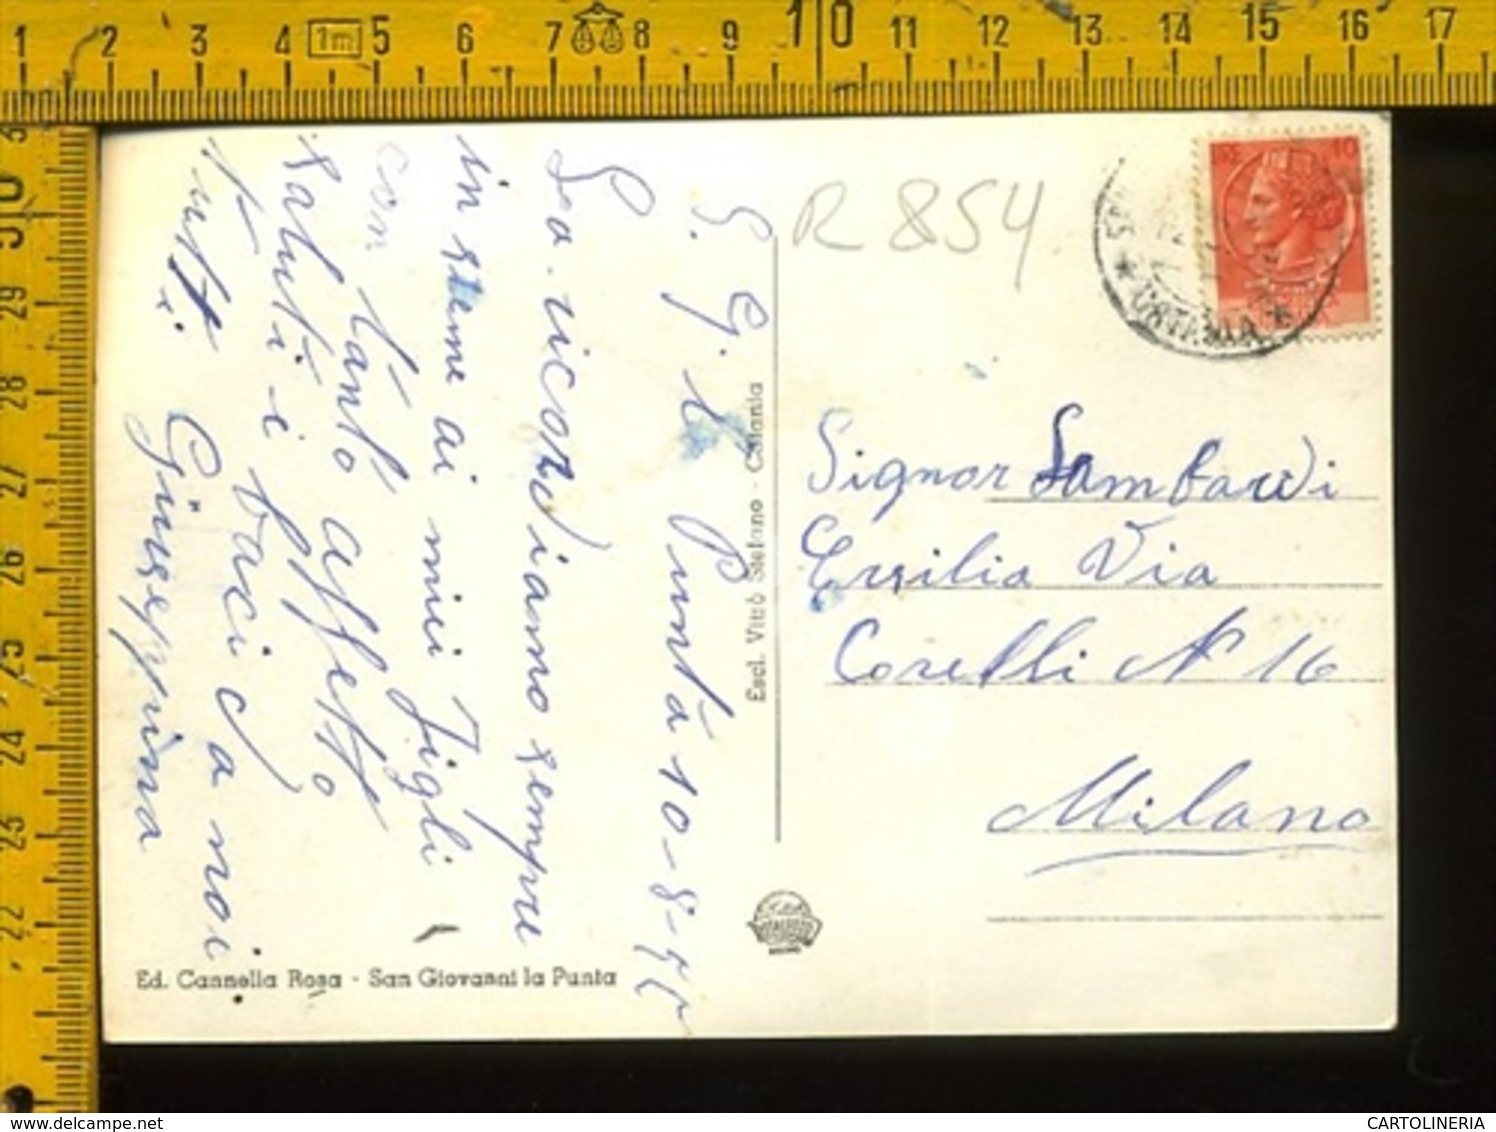 1 2 3 4 1m 5 6 7 8 9 10 11 12 13 14 15 16 17
R 854
10
CATANIA
S. G. la Punta 10-8-55
La. ricordiamo sempre
in sieme ai miei figli
con tanto affetto
saluti i baci da noi
tutti. Giuseppina
Escl. Vitrò Stefano - Catania
Signor Lombardi
Ersilia Via
Corelli N 16
Milano
Ed. Cannella Rosa - San Giovanni la Punta
29
28
27
26
25
24
23
22
www.delcampe.net
CARTOLINERIA